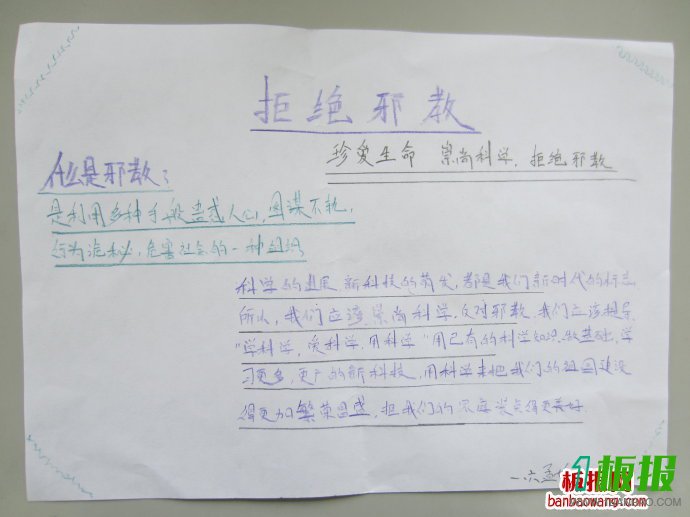 拒绝邪教
珍爱生命 崇尚科学. 拒绝邪教
什么是邪教:
是利用多种手般蛊惑人心, 图谋不轨,
行为诡秘, 危害社会的一种组织
科学的进展 新科技的萌发, 都是我们新时代的标志
所以, 我们应该 崇尚科学, 反对邪教. 我们应该提导
"学科学, 爱科学, 用科学" 用已有的科学知识做基础, 学
习更多, 更广的新科技, 用科学来把我们的祖国建设
得更加繁荣昌盛, 把我们的家庭装点得更美好.
一六
板报网
板报
banbaowang.com